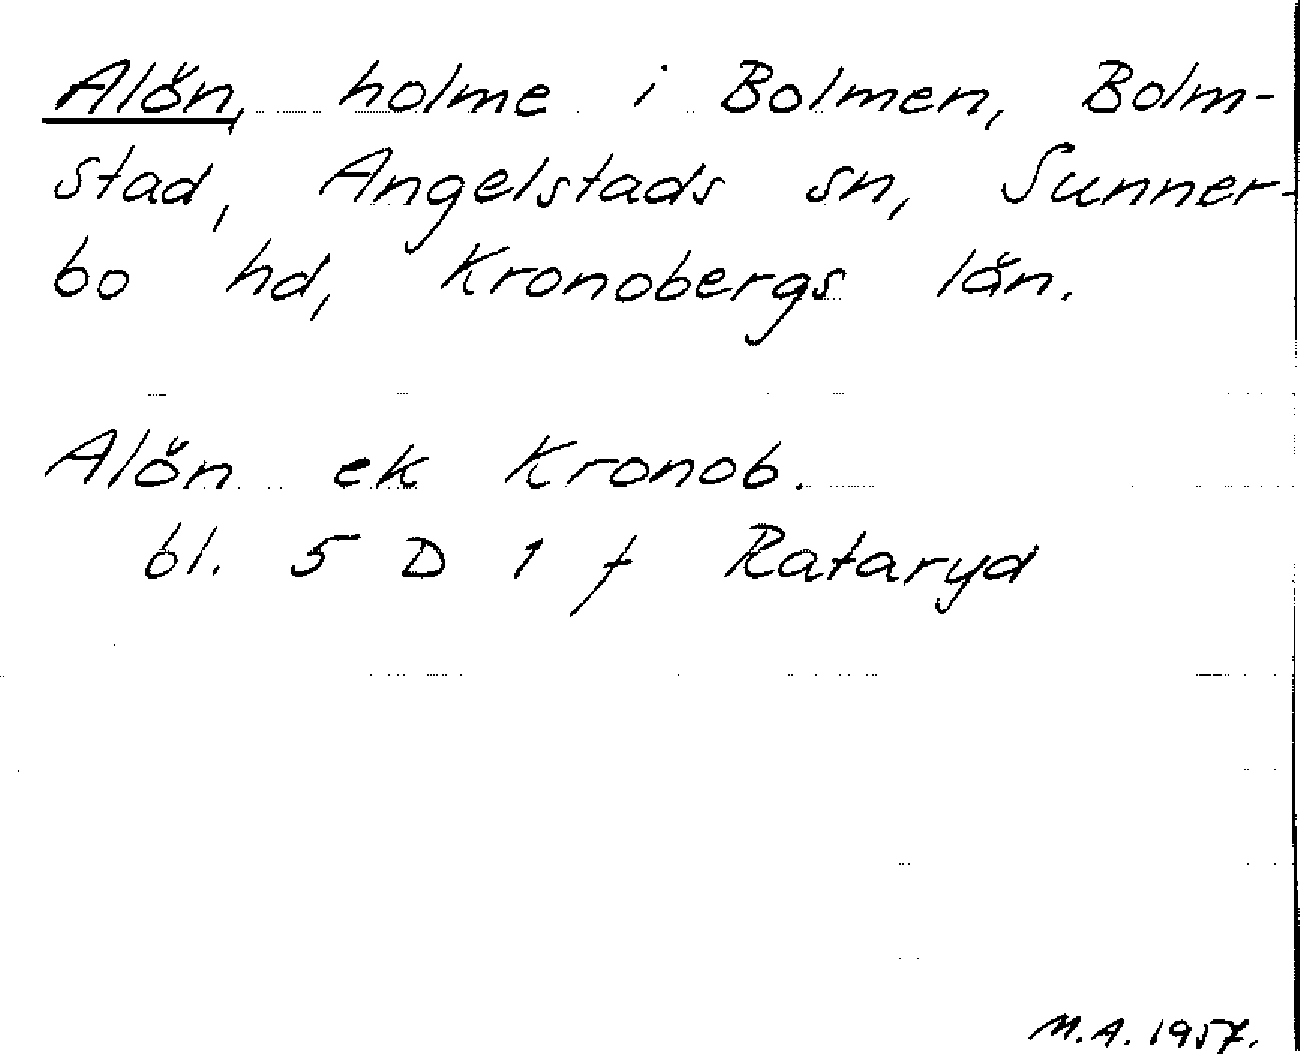 Alön, holme i Bolmen, Bolm-
stad, Angelstads sn, Sunner-
bo hd, Kronobergs län.
Alön ek Kronob.
bl. 5 D 1 f Rataryd
M.A. 1957.